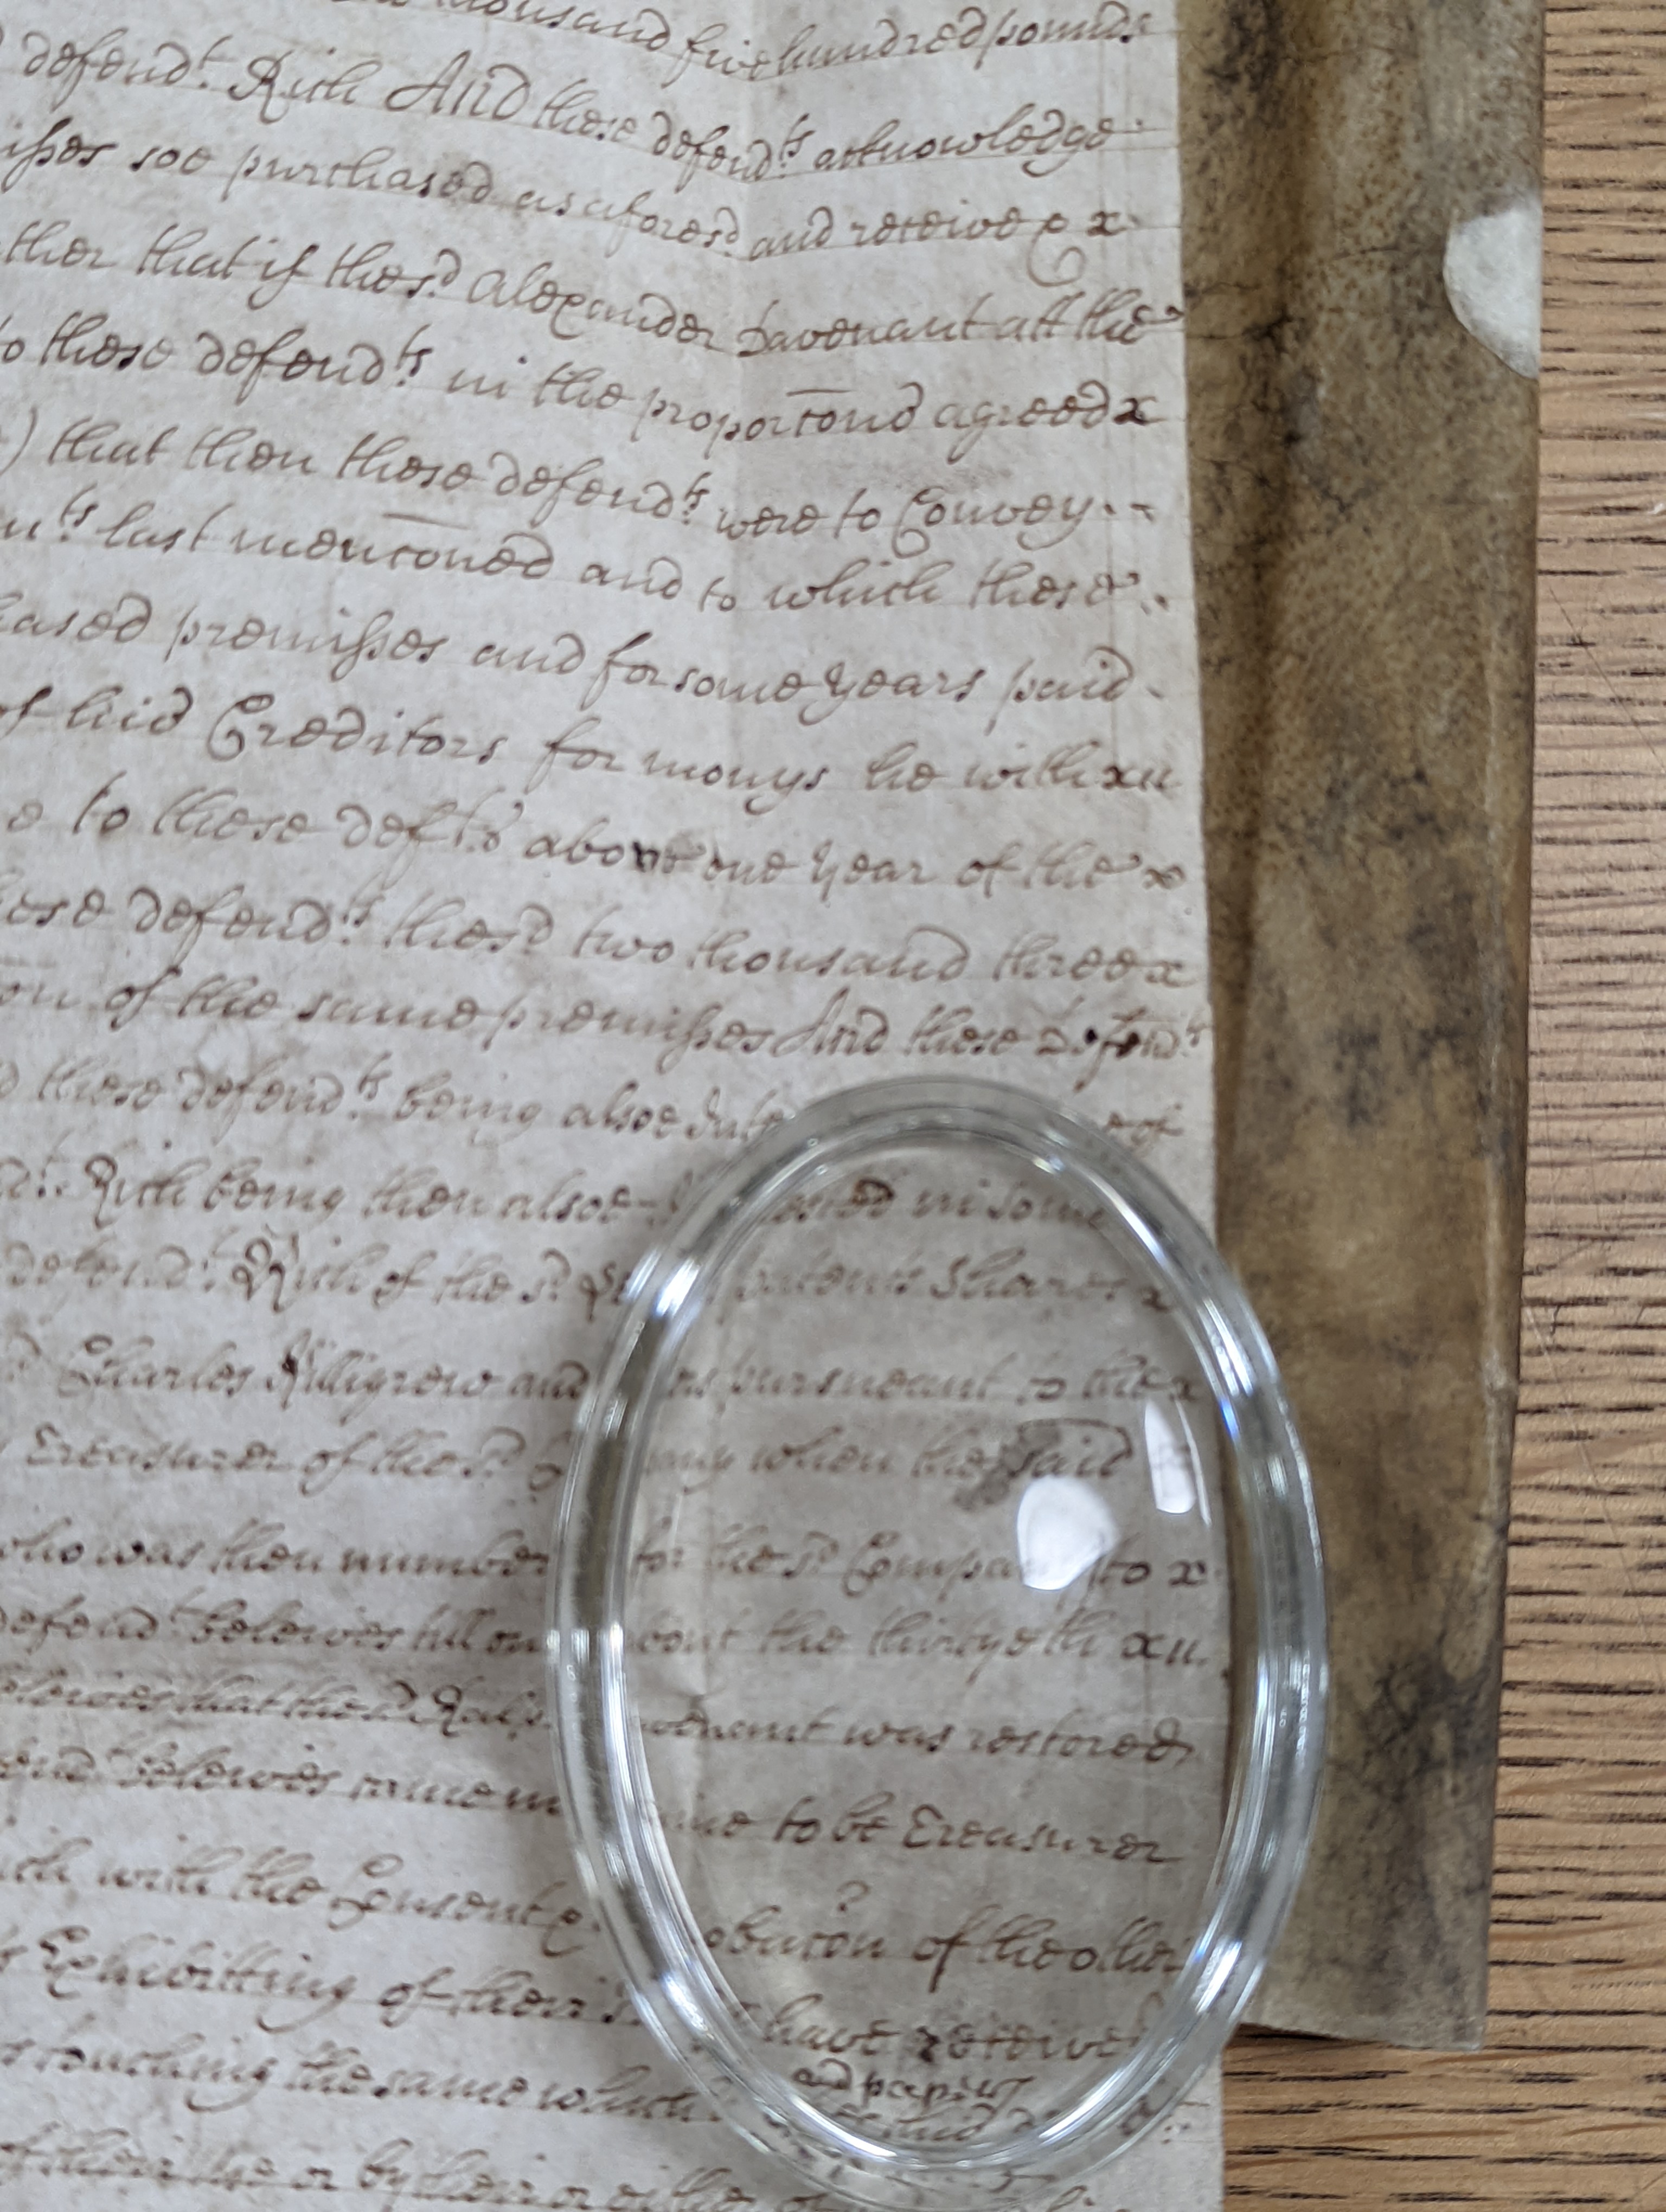 thousand five hundred pounds
defend.t Rich And these defend.ts acknowledge
isses soe purchased as afores.d and receive x
ther that if the s.d Alexander Davenant att the
to these defend.ts in the proporcond agreed x
) that then these defend.ts were to Convey
n.ts last mencioned and to which these
ased premisses and for some years paid
of hid Creditors for monys he with
e to these def.ts about one year of the
ese defend.ts the s.d two thousand three x
on of the same premisses And these defend.ts
d these defend.ts being alsoe of
Rich being then alsoe in some
defend.t Rich of the s.d Shares x
Charles Killigrew and pursueant to the x
Treasurer of the s.d when the said
who was then for the s.d to x
defend.t beleives till about the thirtyeth
beleives that the s.d was restored
beleives came to be Treasurer
with the Consent of the other
Exhibitting of their have receive
and papers
touching the same which
of their use or by their or